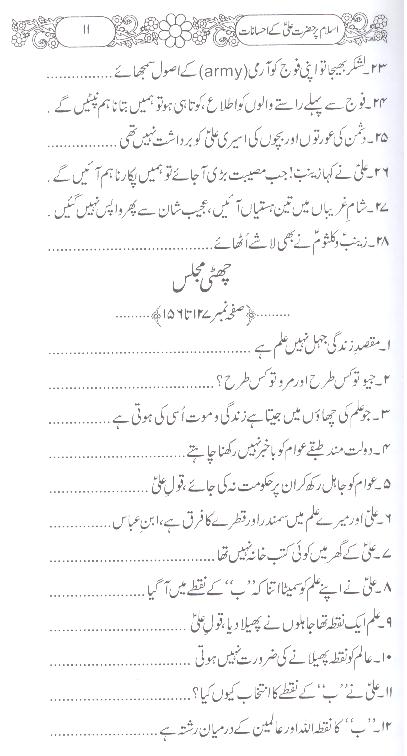 اسلام پر حضرت علیؑ کے احسانات
۱۱
۲۳۔ لشکر بھیجا تو اپنی فوج کو آرمی (army) کے اصول سمجھائے
۲۴۔ فوج سے پہلے راستے والوں کو اطلاع، کوتاہی ہو تو ہمیں بتانا ہم نپٹیں گے۔
۲۵۔ دشمن کی عورتوں اور بچوں کی اسیری علیؑ کو برداشت نہیں تھی
۲۶۔ علیؑ نے کہا زینبؑ! جب مصیبت بڑی آ جائے تو ہمیں پکارنا ہم آئیں گے۔
۲۷۔ شامِ غریباں میں تین ہستیاں آئیں، عجیب شان سے پھر واپس نہیں گئیں۔
۲۸۔ زینبؑ و کلثومؑ نے بھی لاشے اُٹھائے
چھٹی مجلس
﴿صفحہ نمبر ۱۲۷ تا ۱۵۶﴾
۱۔ مقصدِ زندگی جہل نہیں علم ہے
۲۔ جیو تو کس طرح اور مرو تو کس طرح؟
۳۔ جو علم کی چھاؤں میں جیتا ہے زندگی و موت اُسی کی ہوتی ہے
۴۔ دولت مند طبقے عوام کو باخبر نہیں رکھنا چاہتے
۵۔ عوام کو جاہل رکھ کر ان پر حکومت نہ کی جائے، قولِ علیؑ
۶۔ علیؑ اور میرے علم میں سمندر اور قطرے کا فرق ہے، ابنِ عباس
۷۔ علیؑ کے گھر میں کوئی کتب خانہ نہیں تھا
۸۔ علیؑ نے اپنے علم کو سمیٹا اتنا کہ ”ب“ کے نقطے میں آ گیا
۹۔ علم ایک نقطہ تھا جاہلوں نے پھیلا دیا، قولِ علیؑ
۱۰۔ عالم کو نقطہ پھیلانے کی ضرورت نہیں ہوتی
۱۱۔ علیؑ نے ”ب“ کے نقطے کا انتخاب کیوں کیا؟
۱۲۔ ”ب“ کا نقطہ اللہ اور عالمین کے درمیان رشتہ ہے